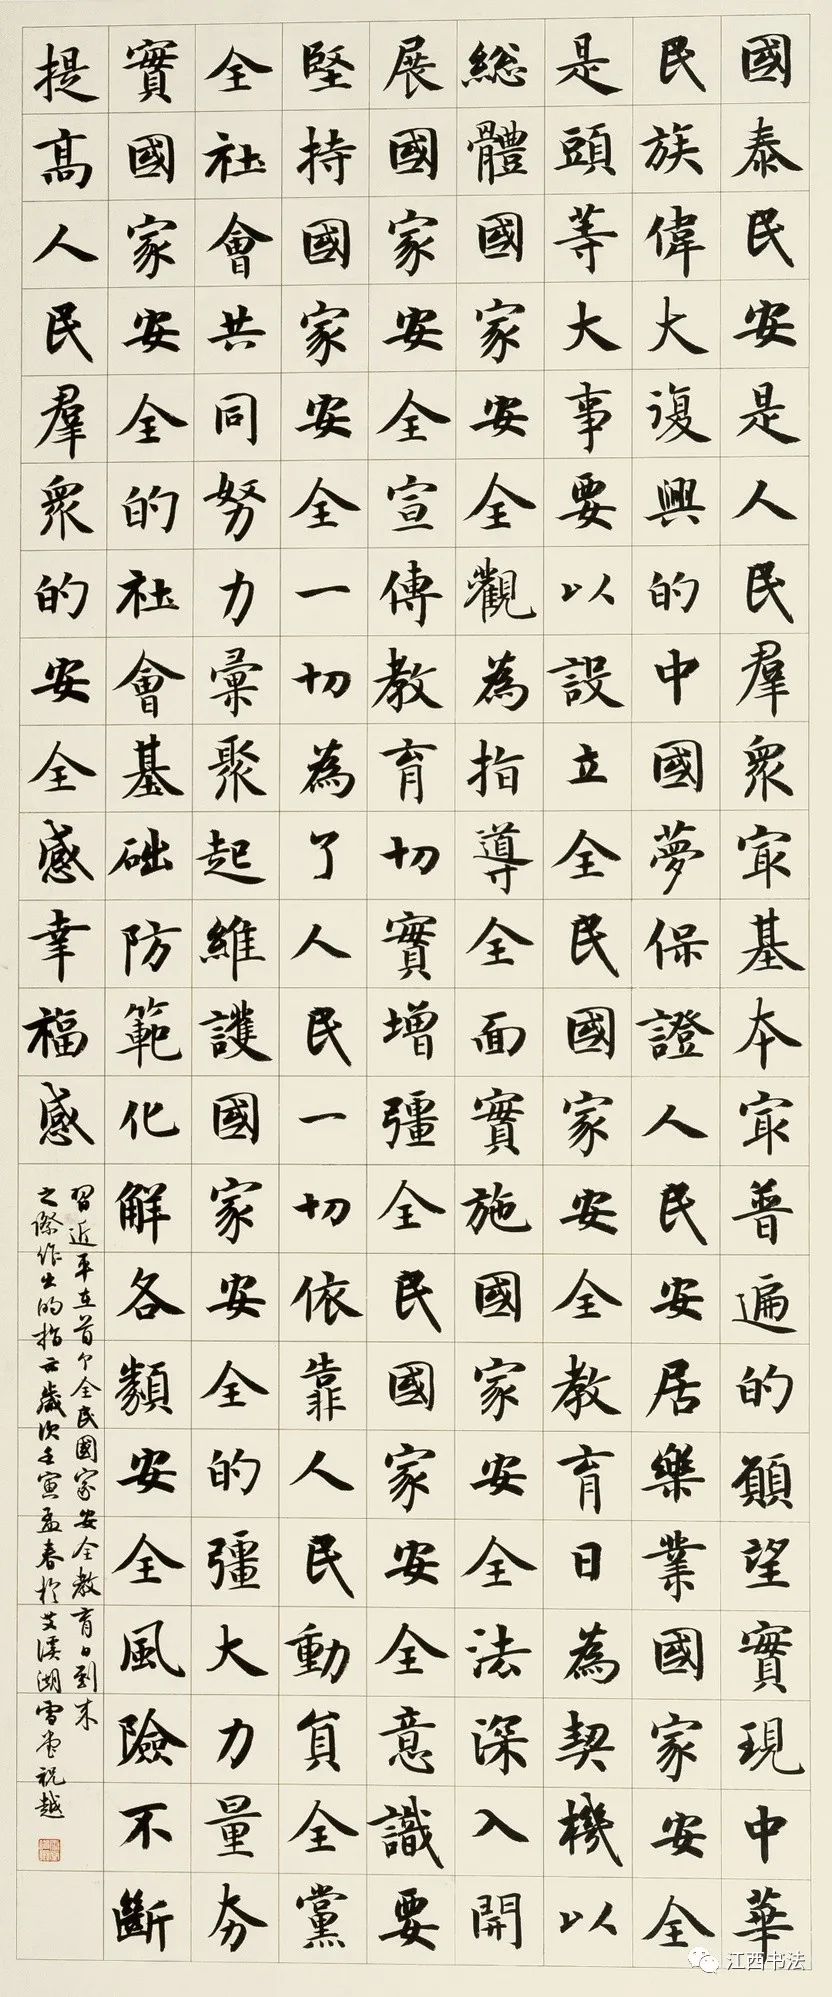 國泰民安是人民羣眾㝡基本㝡普遍的願望實現中華
民族偉大復興的中國夢保證人民安居樂業國家安全
是頭等大事要以設立全民國家安全教育日為契機以
総體國家安全觀為指導全面實施國家安全法深入開
展國家安全宣傳教育切實增彊全民國家安全意識要
堅持國家安全一切為了人民一切依靠人民動員全黨
全社會共同努力彙聚起維護國家安全的彊大力量夯
實國家安全的社會基础防範化解各類安全風險不斷
提高人民羣眾的安全感幸福感
習近平在首个全民國家安全教育日到来
之際作出的指示歲次壬寅孟春於艾溪湖雪堂祝越
江西书法